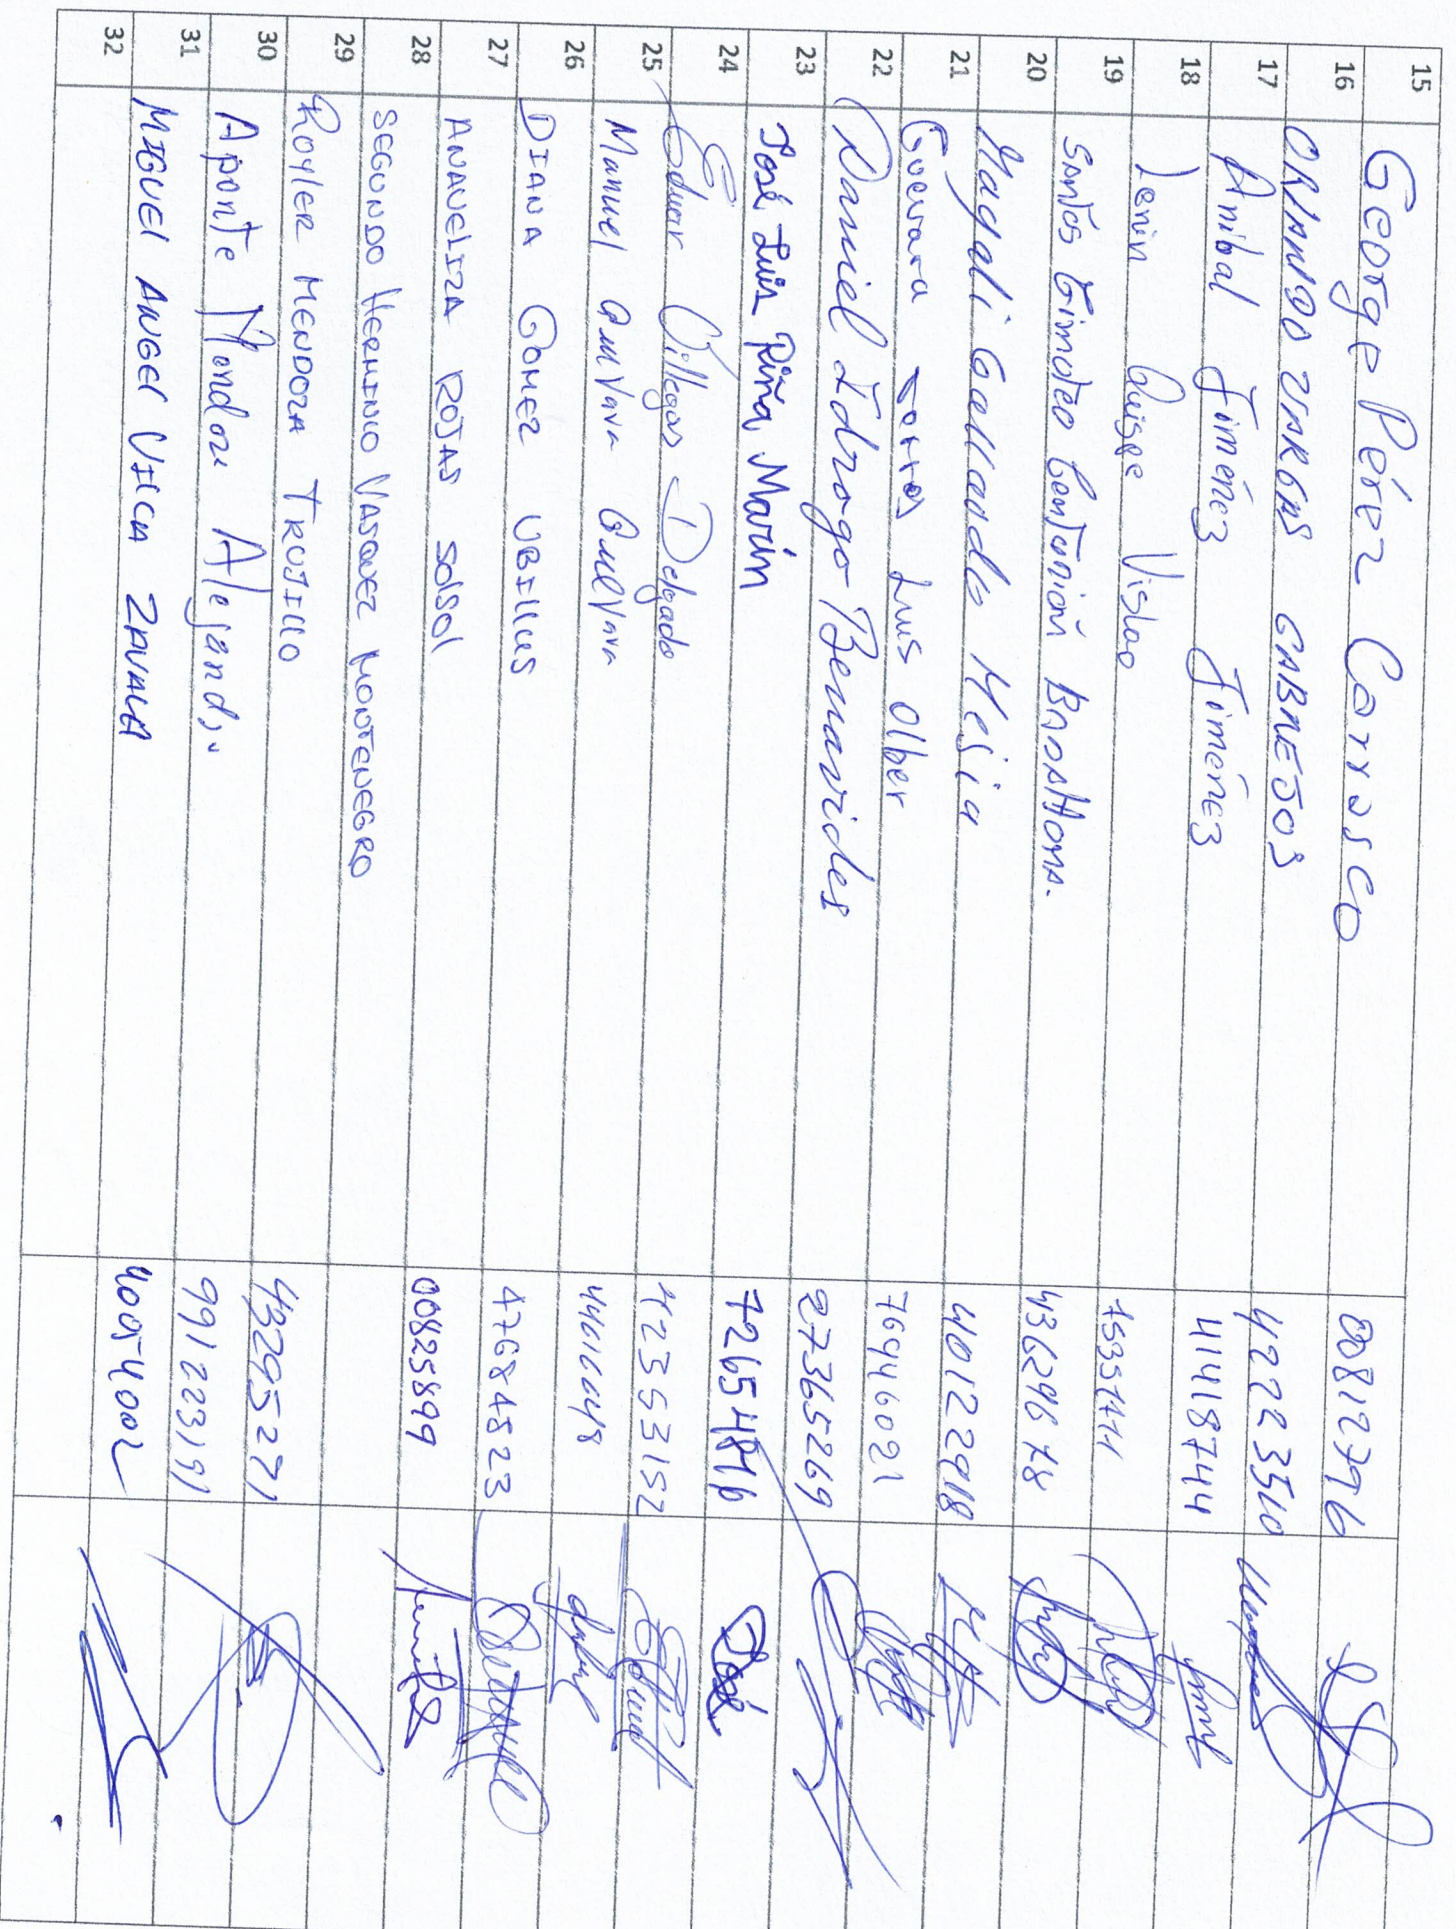 15 George Pérez Carrasco 00812796
16 ORLANDO VARGAS CABREJOS 42223510
17 Anibal Jiménez Jiménez 41418744
18 Lenin Quispe Vislao
19 Santos Timoteo Centurión 43629678
20 Magali Gallardo Mejia 40122918
21 Guevara Torres Luis Olber 76946021
22 Daniel Idrogo Benavides 27365269
23 José Luis Piña Marin 72654816
24 Eduar Villegas Delgado
25 Manuel Guevara Guevara
26 DIANA GOMEZ UBILLUS 47684523
27 ANAVELIZA ROJAS SOLSOL 00825899
28 SEGUNDO HERMINO VASQUEZ MONTENEGRO
29 ROYLER MENDOZA TRUJILLO 43295271
30 Aponte 991223191
31 MIGUEL ANGEL VILCA ZAVALA 40054002
32